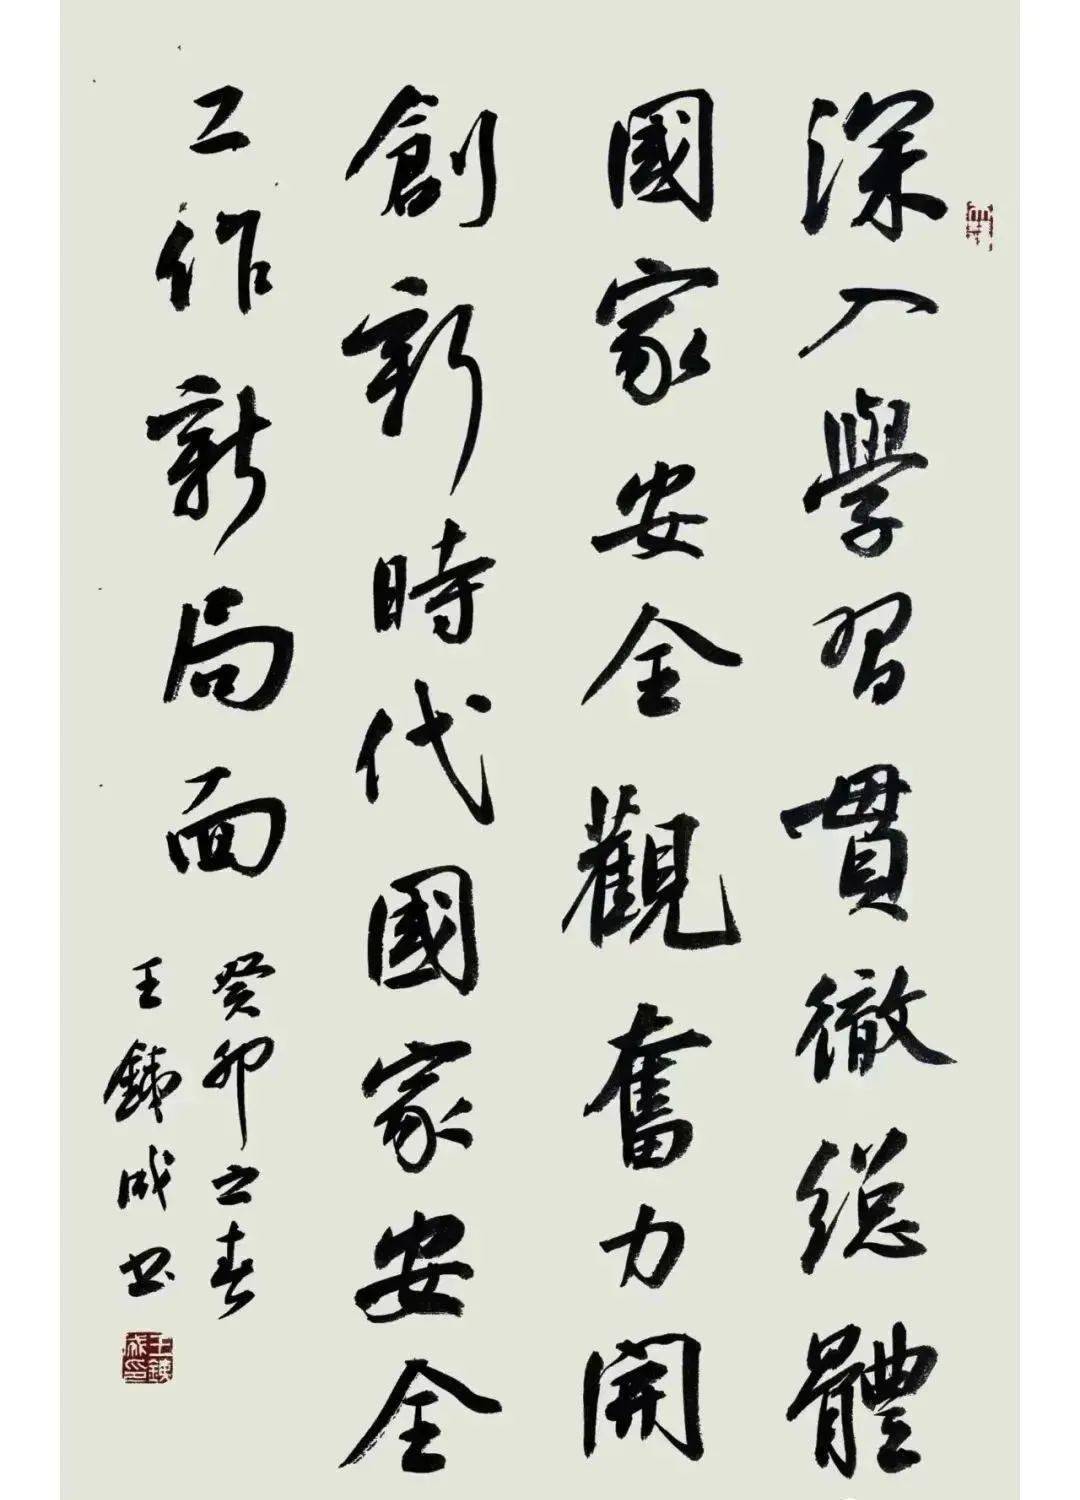 深入學習貫徹總體
國家安全觀奮力開
創新時代國家安全
工作新局面
癸卯之春
王鐵成书
王鐵成印